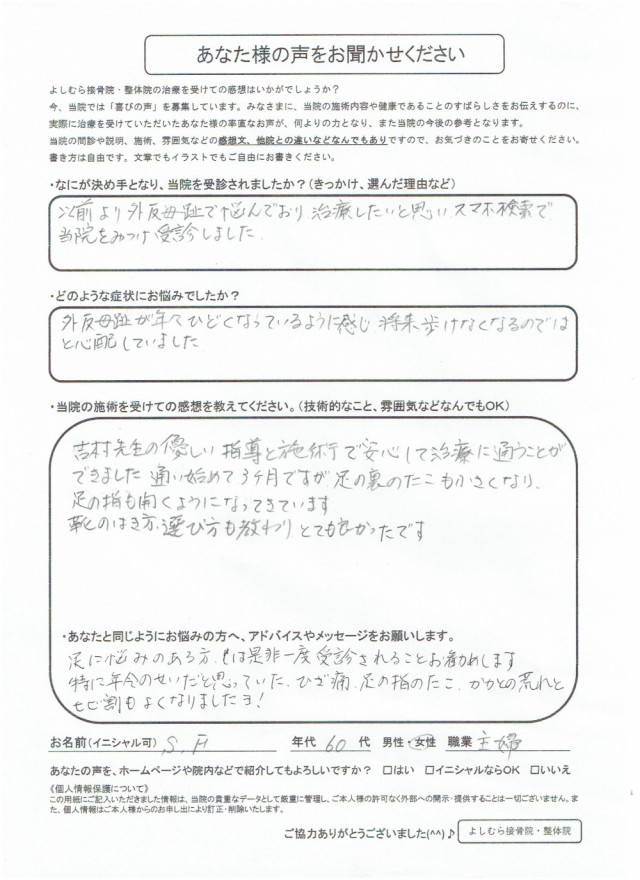 あなた様の声をお聞かせください
よしむら接骨院・整体院の治療を受けての感想はいかがでしょうか？
今、当院では「喜びの声」を募集しています。みなさまに、当院の施術内容や健康であることのすばらしさをお伝えするのに、
実際に治療を受けていただいたあなた様の率直なお声が、何よりの力となり、また当院の今後の参考となります。
当院の問診や説明、施術、雰囲気などの感想文、他院との違いなどなんでもありですので、お気づきのことをお寄せください。
書き方は自由です。文章でもイラストでもご自由にお書きください。
・なにが決め手となり、当院を受診されましたか？(きっかけ、選んだ理由など)
以前より外反母趾で悩んでおり 治療したいと思い スマホ検索で
当院をみつけ受診しました.
・どのような症状にお悩みでしたか？
外反母趾が年々ひどくなっているように感じ 将来歩けなくなるのでは
と心配していました
・当院の施術を受けての感想を教えてください。(技術的なこと、雰囲気などなんでもOK)
吉村先生の優しい指導と施術で安心して治療に通うことが
できました 通い始めて3ヶ月ですが 足の裏のたこも小さくなり、
足の指も開くようになってきています
靴のはき方、選び方も教わり とても良かったです
・あなたと同じようにお悩みの方へ、アドバイスやメッセージをお願いします。
足に悩みのある方 は是非一度受診されることお勧めします
特に年令のせいだと思っていた、ひざ痛、足の指のたこ、かかとの荒れと
ヒビ割もよくなりましたヨ!
お名前(イニシャル可) S. F 年代 60 代 男性・女性 職業 主婦
あなたの声を、ホームページや院内などで紹介してもよろしいですか？ □はい □イニシャルならOK □いいえ
《個人情報保護について》
この用紙にご記入いただきました情報は、当院の貴重なデータとして厳重に管理し、ご本人様の許可なく外部への開示・提供することは一切ございません。ま
た、個人情報はご本人様からのお申し出により訂正・削除いたします。
ご協力ありがとうございました(^^)♪ よしむら接骨院・整体院